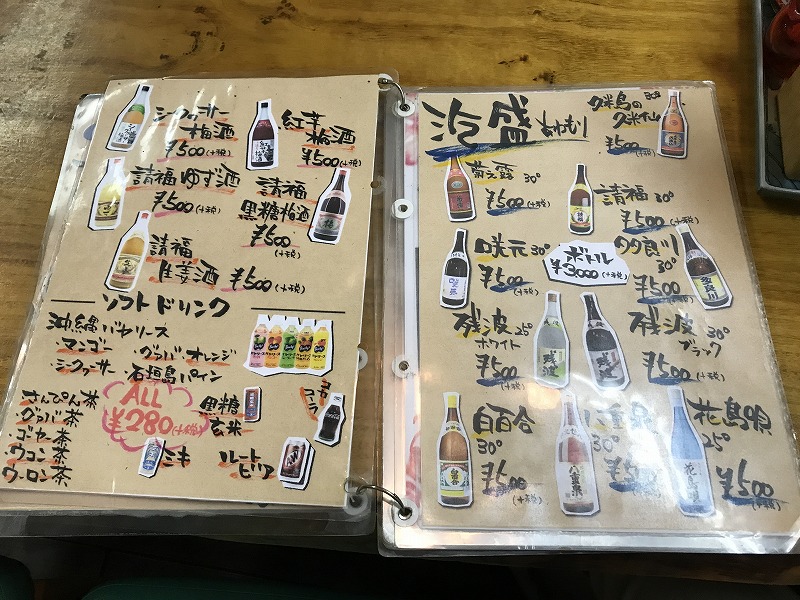 シークヮーサー
梅酒
¥500(+税)
紅芋
梅酒
¥500(+税)
請福ゆず酒
¥500(+税)
請福
黒糖梅酒
¥500
(+税)
請福
生姜酒 ¥500(+税)
ソフトドリンク
沖縄バヤリース
・マンゴー ・グァバ・オレンジ
・シークヮーサー ・石垣島パイン
さんぴん茶
・グァバ茶
・ゴーヤー茶
・ウコン茶
ウーロン茶
ALL
¥280(+税)
黒糖
玄米
コーラ
ミキ
ルート
ビア
泡盛 あわもり
久米島の
久米仙
30°
¥500
(+税)
菊之露 30°
¥500(+税)
請福 30°
¥500(+税)
咲元 30°
¥500
(+税)
ボトル
¥3,000(+税)
多良川
30°
¥500
(+税)
残波 25°
ホワイト
¥500
(+税)
残波 30°
ブラック
¥500(+税)
白百合
30°
¥500
(+税)
八重泉
30°
¥500
(+税)
花島唄
25°
¥500
(+税)